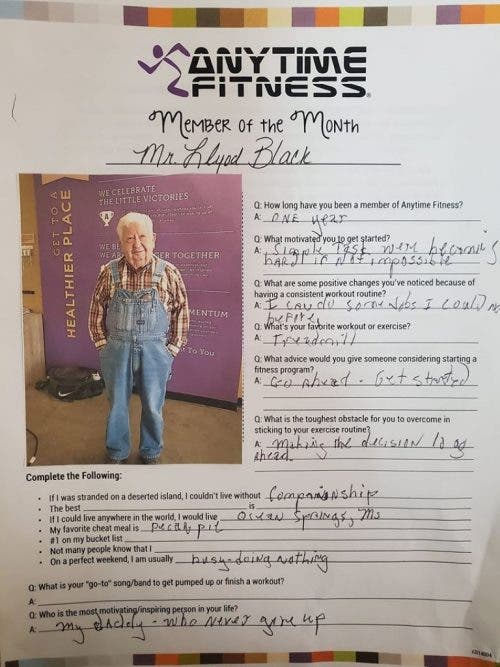 ANYTIME
FITNESS®
MEMBER OF the MONTH
Mr. Llyod Black
GET TO A
HEALTHIER PLACE
WE CELEBRATE
THE LITTLE VICTORIES
WE BE
WE AR
GER TOGETHER
MENTUM
t To You
Q: How long have you been a member of Anytime Fitness?
A: ONE year
Q: What motivated you to get started?
A: Simple Task were becoming
hard if not impossible
Q: What are some positive changes you've noticed because of
having a consistent workout routine?
A: I can do some Jobs I could no
before
Q: What's your favorite workout or exercise?
A: Treadmill
Q: What advice would you give someone considering starting a
fitness program?
A: Go Ahead - Get started
Q: What is the toughest obstacle for you to overcome in
sticking to your exercise routine?
A: making the decision to go
Ahead
Complete the Following:
• If I was stranded on a deserted island, I couldn't live without Companionship
• The best is
• If I could live anywhere in the world, I would live Ocean Springs, Ms
• My favorite cheat meal is pecan pie
• #1 on my bucket list
• Not many people know that I
• On a perfect weekend, I am usually busy-doing nothing
Q: What is your "go-to" song/band to get pumped up or finish a workout?
A:
Q: Who is the most motivating/inspiring person in your life?
A: my daddy - who never gave up